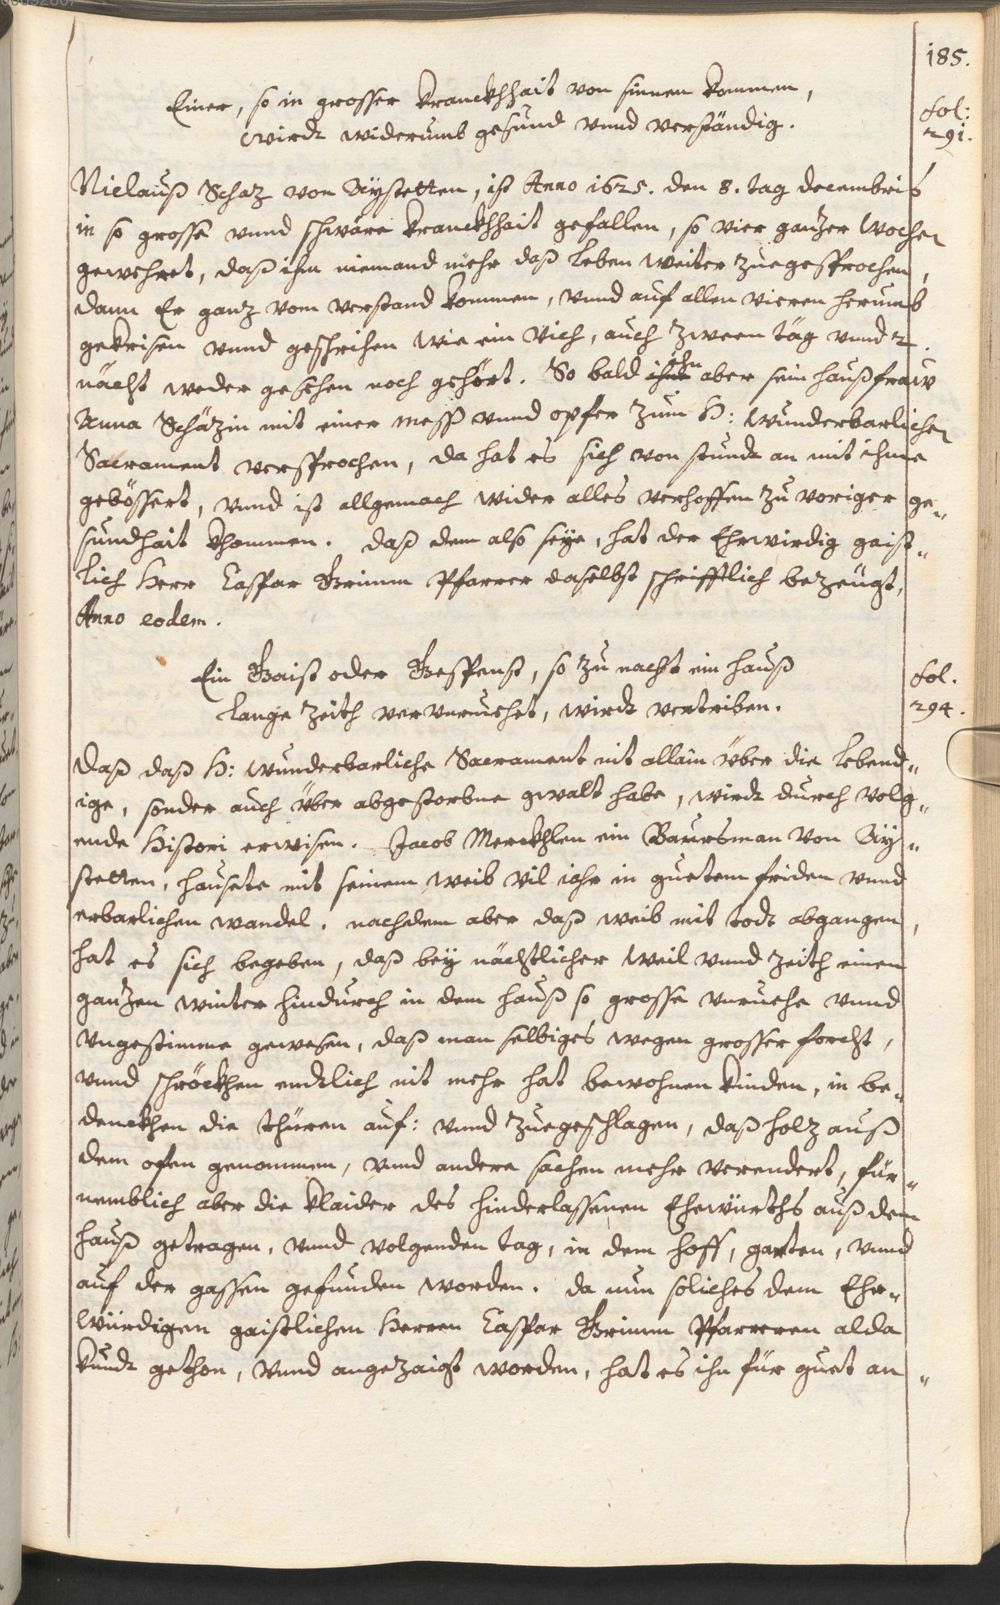 185.
Einer, so in grosser Kranckhhait von sinnen kommen,
wirdt widerumb gesund vnnd verständig.
fol:
291.
Niclauß Schaz von Aystetten, ist Anno 1625. den 8. tag decembris
in so grosse vnnd schwäre Kranckhhait gefallen, so vier ganzer Wochen
gewehret, daß ihm niemand mehr daß leben weiter zuegesprochen,
dann Er ganz vom verstand kommen, vnnd auf allen vieren herumb
gekrisen vnnd geschrihen wie ein Vich, auch zween täg vnnd 2.
nächt weder gesehen noch gehört. So bald ihn aber sein haußfraw
Anna Schäzin mit einer mess vnnd opfer zum H: Wunderbarlichen
Sacrament versprochen, da hat es sich von stundt an mit ihme
gebössert, vnnd ist allgemach wider alles verhoffen zu voriger ge„
sundhait khommen. daß dem also seye, hat der Ehrwirdig gaist„
lich Herr Caspar Grimm Pfarrer daselbst schrifftlich bezeügt,
Anno eodem.
Ein Gaist oder Gespenst, so zu nacht ein hauß
lange zeith vervnruehet, wirdt vertriben.
fol.
294.
Daß daß H: Wunderbarliche Sacrament nit allain über die lebend„
ige, sonder auch über abgestorbne gwalt habe, wirdt durch volg„
ende Histori erwisen. Jacob Merckhlen ein Baursman von Ay„
stetten, hausete mit seinem weib vil iahr in guetem friden vnnd
erbarlichen wandel. nachdem aber daß weib mit todt abgangen,
hat es sich begeben, daß bey nächtlicher weil vnnd zeith einen
ganzen winter hindurch in dem hauß so grosse vnruehe vnnd
vngestimme gewesen, daß man selbiges wegen grosser forcht,
vnnd schröckhen endtlich nit mehr hat bewohnen kinden, in be„
denckhen die thüren auf: vnnd zuegeschlagen, daß holz auß
dem ofen genommen, vnnd andere sachen mehr verendert, für„
nemblich aber die klaider des hinderlassenen Ehewürths auß dem
hauß getragen, vnnd volgenden tag, in dem hoff, garten, vnnd
auf der gassen gefunden worden. da nun soliches dem Ehr„
würdigen gaistlichen Herren Caspar Grimm Pfarreren alda
kundt gethon, vnnd angezaigt worden, hat es ihn für guet an„